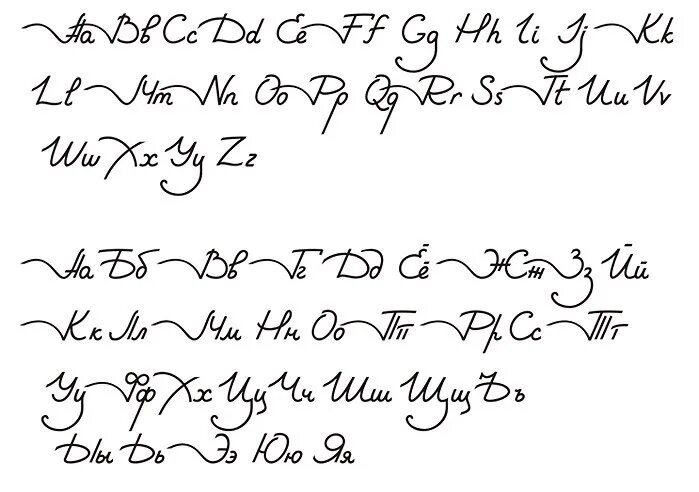 Aa Bb Cc Dd Ee Ff Gg Hh Ii Jj Kk
Ll Mm Nn Oo Pp Qq Rr Ss Tt Uu Vv
Ww Xx Yy Zz
Аа Бб Вв Гг Дд Ёё Жж Зз Йй
Кк Лл Мм Нн Оо Пп Рр Сс Тт
Уу Фф Хх Цц Чч Шш Щщ Ъъ
Ыы Ьь Ээ Юю Яя